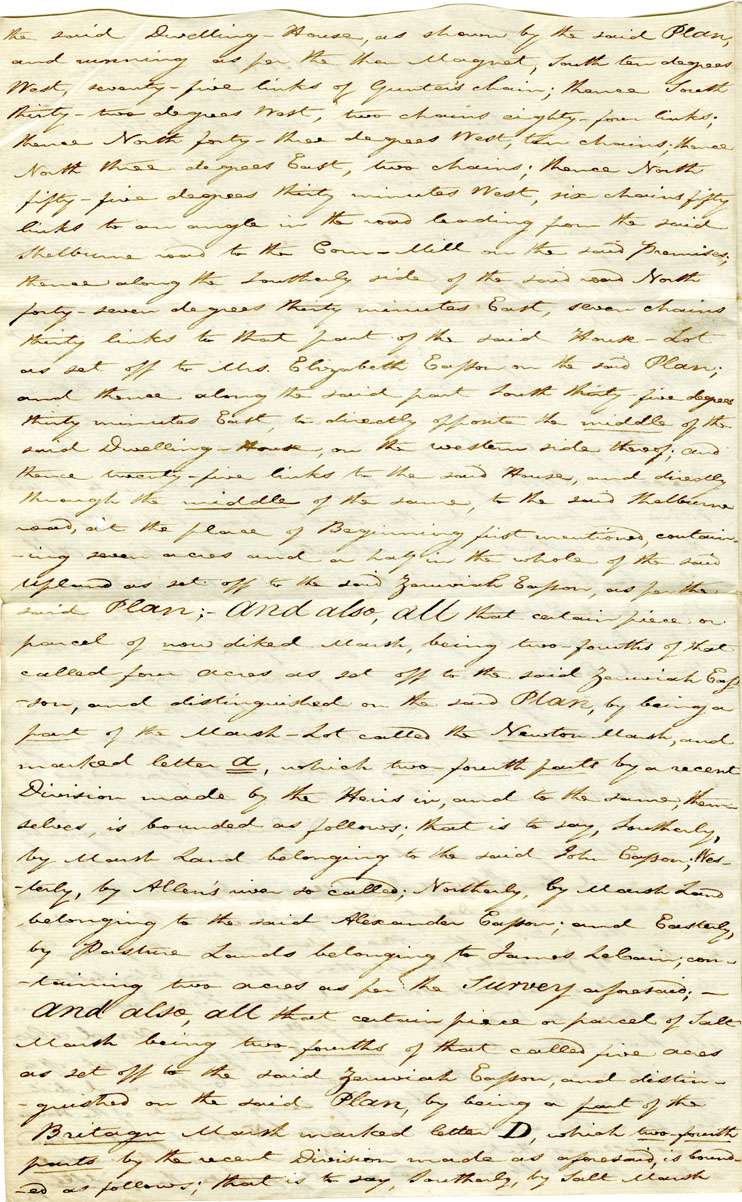 the said Dwelling-House, as shewn by the said Plan,
and running as per the then Magnet, South ten degrees
West, seventy-five links of Gunter's chain; thence South
thirty-two degrees West, two chains eighty-four links;
thence North forty-three degrees West, ten chains; thence
North three degrees East, two chains; thence North
fifty-five degrees thirty minutes West, six chains fifty
links to an angle in the road leading from the said
Shelburne road to the Corn-Mill on the said Premises;
thence along the Southerly side of the said road North
forty-seven degrees thirty minutes East, seven chains
thirty links to that part of the said House-Lot
as set off to Mrs. Elizabeth Easson on the said Plan;
and thence along the said part South thirty-five degrees
thirty minutes East, to directly opposite the middle of the
said Dwelling-House, on the western side thereof; and
thence twenty-five links to the said House, and directly
through the middle of the same, to the said Shelburne
road, at the place of Beginning first mentioned, contain-
-ing seven acres and a half in the whole of the said
Upland as set off to the said Zeruiah Easson, as per the
said Plan;- And also, all that certain piece or
parcel of now diked Marsh, being two-fourths of that
called four acres as set off to the said Zeruiah Eas-
-son, and distinguished on the said Plan, by being a
part of the Marsh-Lot called the Newton Marsh, and
marked letter a, which two fourth parts by a recent
Division made by the Heirs in, and to the same, them-
selves, is bounded as follows; that is to say, Southerly,
by Marsh Land belonging to the said John Easson; Wes-
-terly, by Allen's river so called; Northerly, by Marsh Land
belonging to the said Alexander Easson; and Easterly,
by Pasture Lands belonging to James LeCain; con-
-taining two acres as per the Survey aforesaid;-
And also, all that certain piece or parcel of Salt
Marsh being two-fourths of that called five acres
as set off to the said Zeruiah Easson, and distin-
-guished on the said Plan, by being a part of the
Britagn Marsh marked letter D, which two-fourth
parts by the recent Division made as aforesaid, is bound-
-ed as follows; that is to say, Southerly, by Salt Marsh